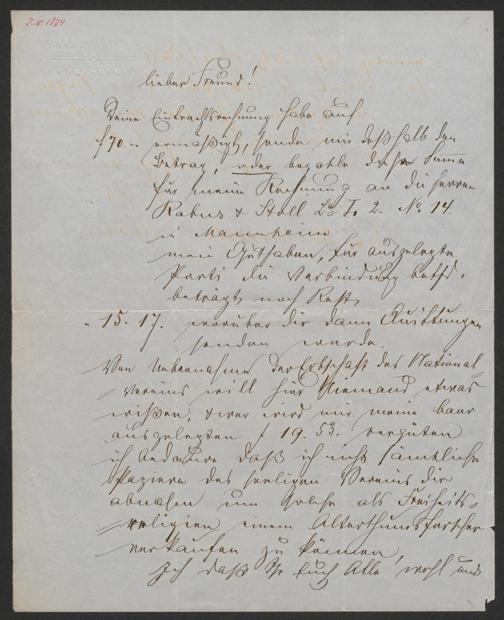 J. N. 1884
lieber Freund!
Deine Eintrachtsrechnung habe auf
f 70.- ermäßigt, sende mir deßhalb den
Betrag, oder bezahle diese Summe
für meine Rechnung an die Herren
Rabus & Stoll La. T. 2. No. 14.
in Mannheim
mein Guthaben, für ausgelegte
Porti die Verbindung betfd.
beträgt noch Rest
" 15. 17. worüber dir dann Quittungen
senden werde.
Von Uebernahme der Erbschaft des National-
=Vereins will hier Niemand etwas
wißen, & wer wird mir meine baar
ausgelegten f 19. 53. vergüten
ich bedaure daß ich nicht sämtliche
Papiere des seeligen Vereins dir
um solche als Freiheits-
=religien einem Alterthumsforscher
verkaufen zu können,
daß Ihr Euch Alle wohl und